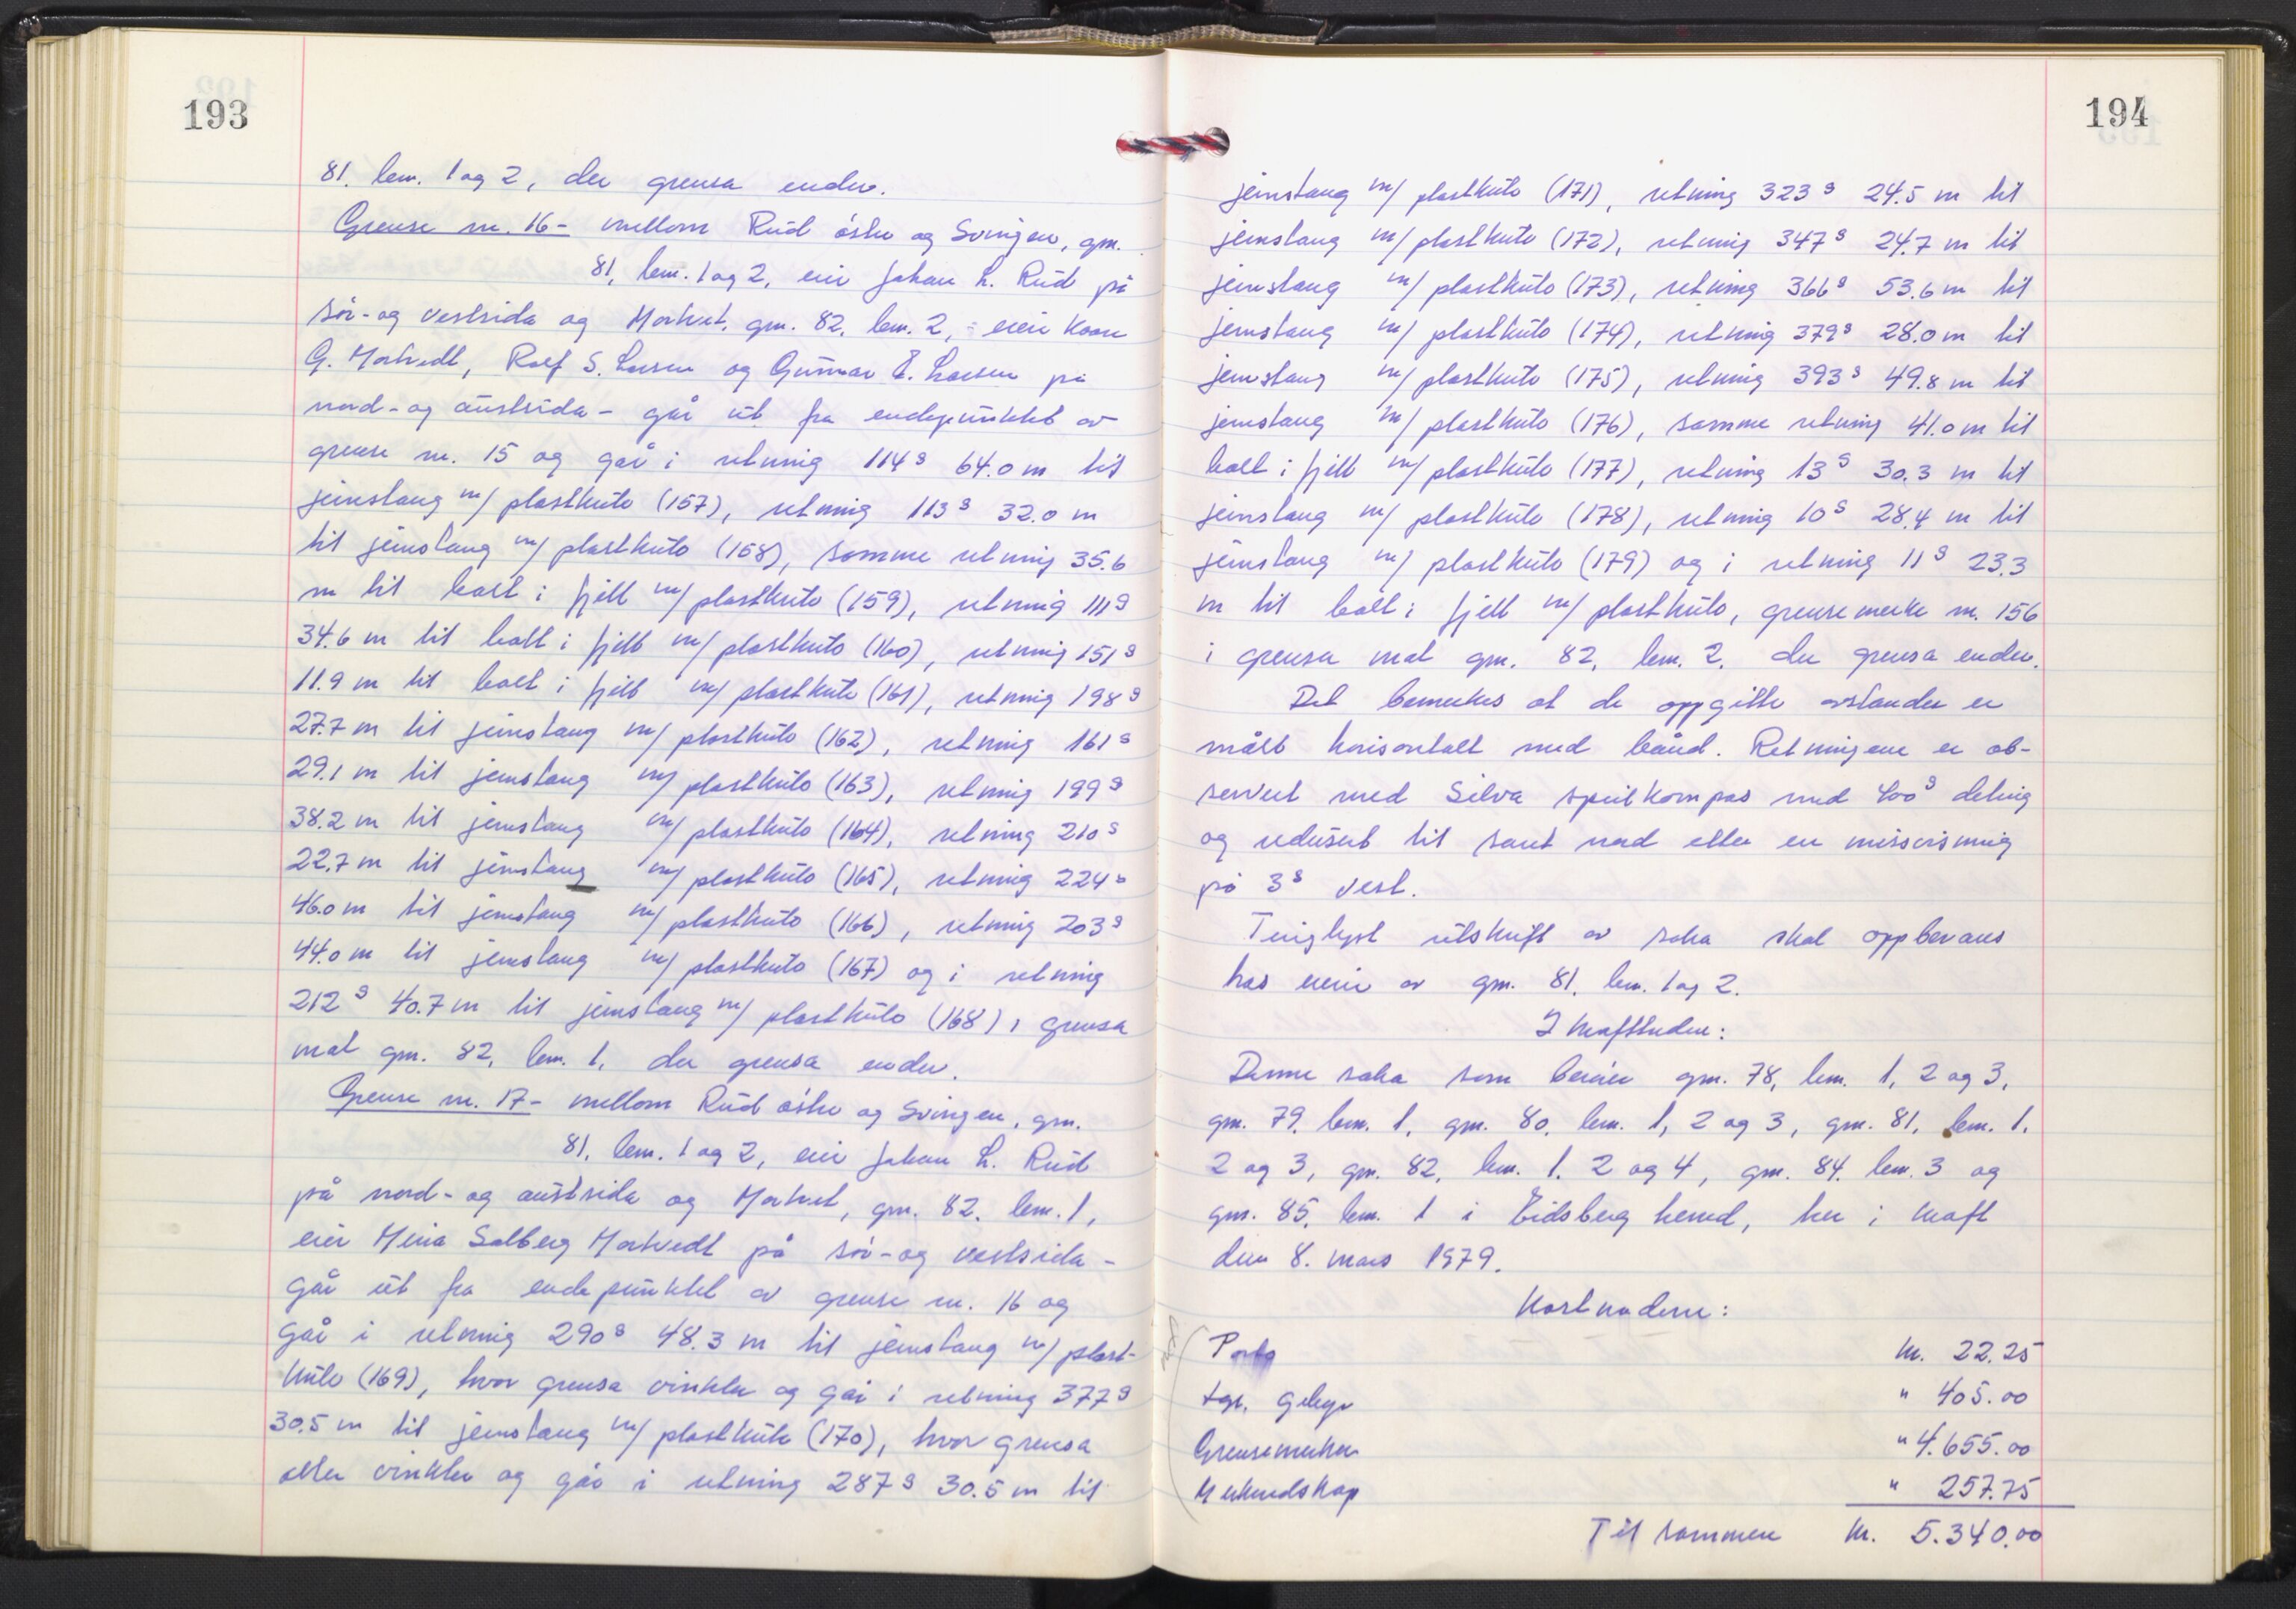 193
81, bnr. 1 og 2, der grensa ender.
Grense nr. 16 - mellom Rud østre og Svingen, gnr.
81, bnr. 1 og 2, eier Johan L. Rud på
sør- og vestsida og Mortvet, gnr. 82, bnr. 2, - eier Kaare
G. Mortvedt, Rolf S. Larsen og Gunnar E. Larsen på
nord- og austsida - går ut fra endepunktet av
grense nr. 15 og går i retning 114g 64.0 m til
jernstang m/ plastkule (157), retning 113g 32.0 m
til jernstang m/ plastkule (158), samme retning 35.6
m til bolt i fjell m/ plastkule (159), retning 111g
34.6 m til bolt i fjell m/ plastkule (160), retning 151g
11.9 m til bolt i fjell m/ plastkule (161), retning 198g
27.7 m til jernstang m/ plastkule (162), retning 161g
29.1 m til jernstang m/ plastkule (163), retning 199g
38.2 m til jernstang m/ plastkule (164), retning 210g
22.7 m til jernstang m/ plastkule (165), retning 224g
46.0 m til jernstang m/ plastkule (166), retning 203g
44.0 m til jernstang m/ plastkule (167) og i retning
212g 40.7 m til jernstang m/ plastkule (168) i grensa
mot gnr. 82, bnr. 1, der grensa ender.
Grense nr. 17 - mellom Rud østre og Svingen, gnr.
81, bnr. 1 og 2, eier Johan L. Rud
på nord- og austsida og Mortvet, gnr. 82, bnr. 1,
eier Mina Solberg Mortvedt på sør- og vestsida -
går ut fra endepunktet av grense nr. 16 og
går i retning 290g 48.3 m til jernstang m/ plast-
kule (169), hvor grensa vinkler og går i retning 377g
30.5 m til jernstang m/ plastkule (170), hvor grensa
atter vinkler og går i retning 287g 30.5 m til
194
jernstang m/ plastkule (171), retning 323g 24.5 m til
jernstang m/ plastkule (172), retning 347g 24.7 m til
jernstang m/ plastkule (173), retning 366g 53.6 m til
jernstang m/ plastkule (174), retning 379g 28.0 m til
jernstang m/ plastkule (175), retning 393g 49.8 m til
jernstang m/ plastkule (176), samme retning 41.0 m til
bolt i fjell m/ plastkule (177), retning 13g 30.3 m til
jernstang m/ plastkule (178), retning 10g 28.4 m til
jernstang m/ plastkule (179) og i retning 11g 23.3
m til bolt i fjell m/ plastkule, grensemerke nr. 156
i grensa mot gnr. 82, bnr. 2, der grensa ender.
Det bemerkes at de oppgitte avstander er
målt horisontalt med bånd. Retningene er ob-
servert med Silva speilkompas med 400g deling
og redusert til sant nord etter en missvisning
på 3g vest.
Tinglyst utskrift av saka skal oppbevares
hos eier av gnr. 81, bnr. 1 og 2.
I krafttreden:
Denne saka som berører gnr. 78, bnr. 1, 2 og 3,
gnr. 79, bnr. 1, gnr. 80, bnr. 1, 2 og 3, gnr. 81, bnr. 1,
2 og 3, gnr. 82, bnr. 1, 2 og 4, gnr. 84, bnr. 3 og
gnr. 85, bnr. 1 i Eidsberg herred, trer i kraft
den 8. mars 1979.
Kostnadene:
Porto kr. 22.25
tgl. gebyr " 405.00
Grensemerker " 4.655.00
Merkredskap " 257.75
Til sammen kr. 5.340.00